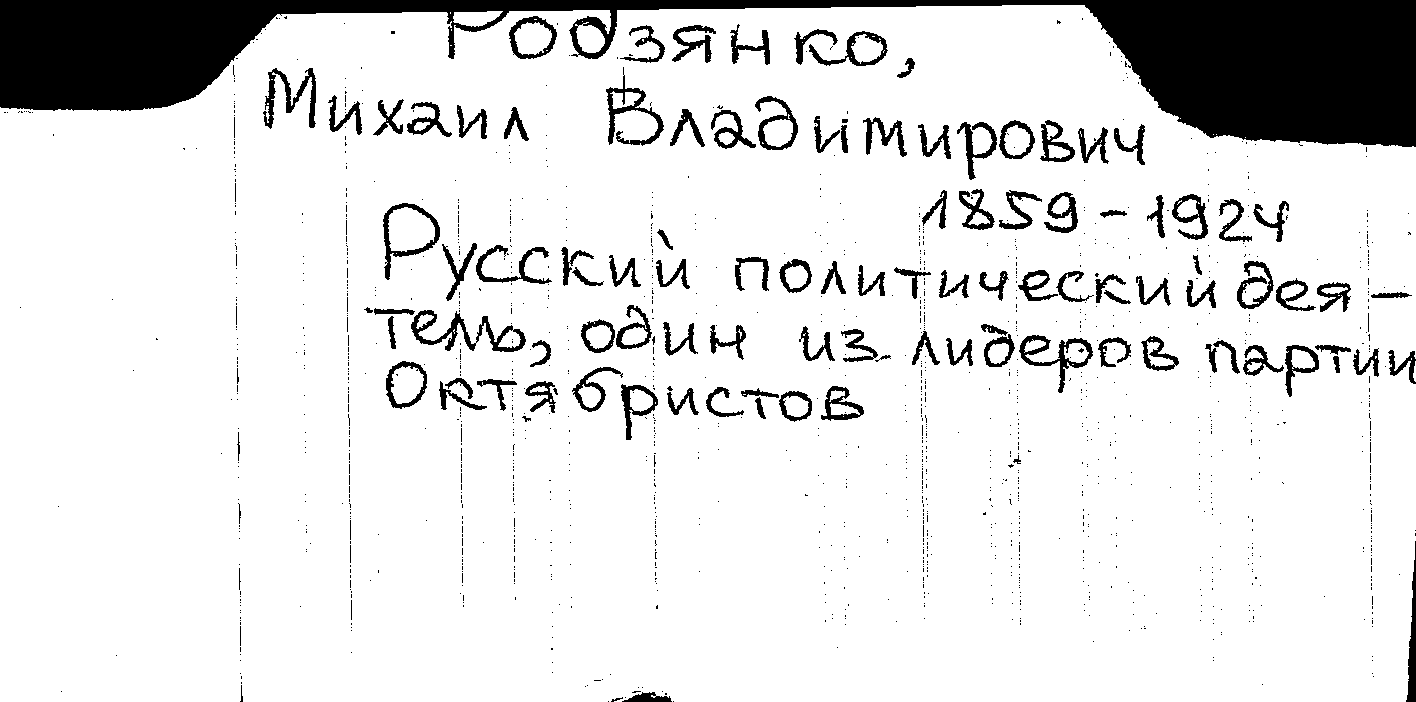 Родзянко,
Михаил Владимирович
1859-1924
Русский политический дея-
тель, один из лидеров партии
Октябристов